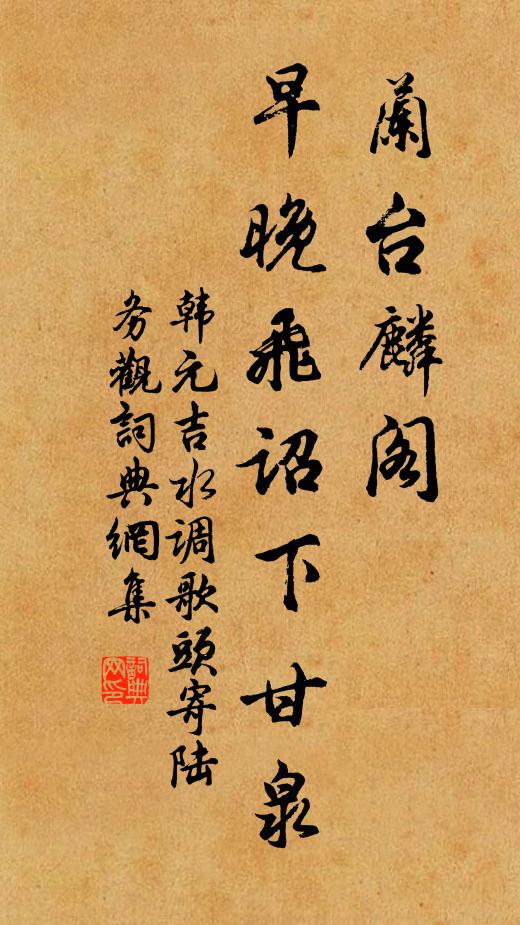 蘭台麟阁
早晚飛诏下甘泉
韩元吉水调歌頭寄陆
务觀詞典網集
詞典网印